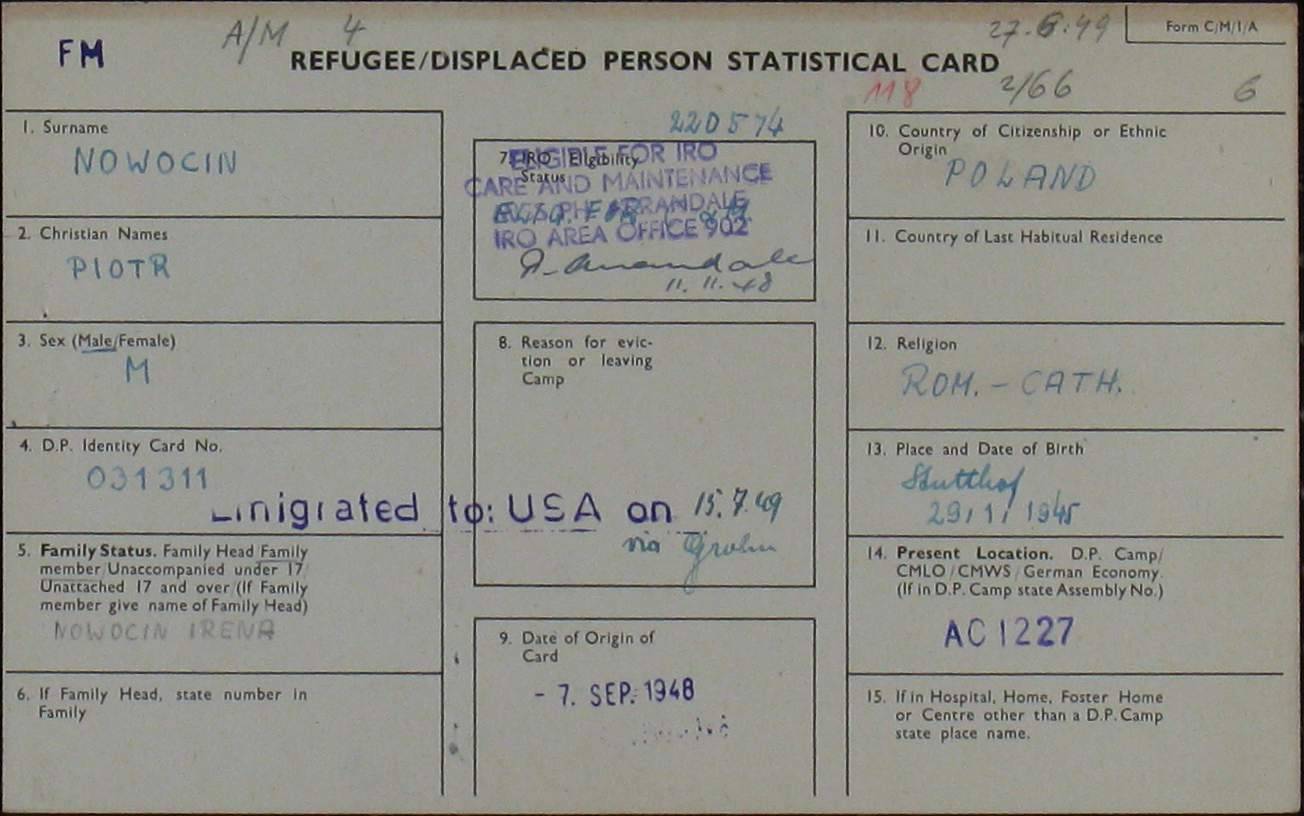 FM
A/M 4
27.6.49
Form C/M/1/A
REFUGEE/DISPLACED PERSON STATISTICAL CARD
118
2/66
6
1. Surname
NOWOCIN
2. Christian Names
PIOTR
3. Sex (Male/Female)
M
4. D.P. Identity Card No.
031311
Emigrated to: USA on 15.7.49
via Grohn
5. Family Status. Family Head/Family
member/Unaccompanied under 17/
Unattached 17 and over (If Family
member give name of Family Head)
NOWOCIN IRENA
6. If Family Head, state number in
Family
220574
7. IRO Eligibility
Status
ELIGIBLE FOR IRO
CARE AND MAINTENANCE
ARRANDALE
IRO AREA OFFICE 902
11.11.48
8. Reason for evic-
tion or leaving
Camp
9. Date of Origin of
Card
- 7. SEP. 1948
10. Country of Citizenship or Ethnic
Origin
POLAND
11. Country of Last Habitual Residence
12. Religion
ROM. - CATH.
13. Place and Date of Birth
Stutthof
29/1/1945
14. Present Location. D.P. Camp/
CMLO/CMWS/German Economy.
(If in D.P. Camp state Assembly No.)
AC 1227
15. If in Hospital, Home, Foster Home
or Centre other than a D.P. Camp
state place name.